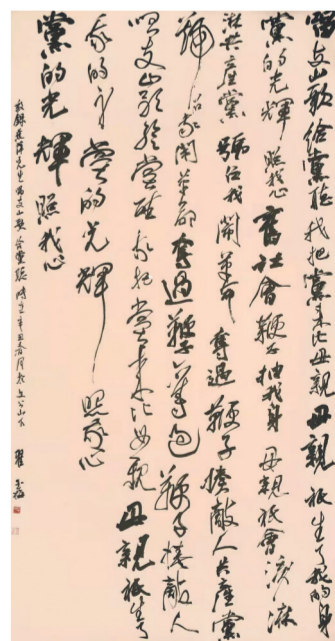 唱支山歌給黨聽我把黨來比母親母親祇生了我的身
黨的光輝照我心舊社會鞭子抽我身母親祇會淚淋
淋共產黨號召我鬧革命奪過鞭子揍敵人共產黨
號召我鬧革命奪過鞭子奪過鞭子揍敵人
唱支山歌給黨聽我把黨來比母親母親祇生了
我的身黨的光輝照我心
黨的光輝照我心
敬錄蕉萍先生唱支山歌給黨聽時在辛丑春月於文公山下
翟